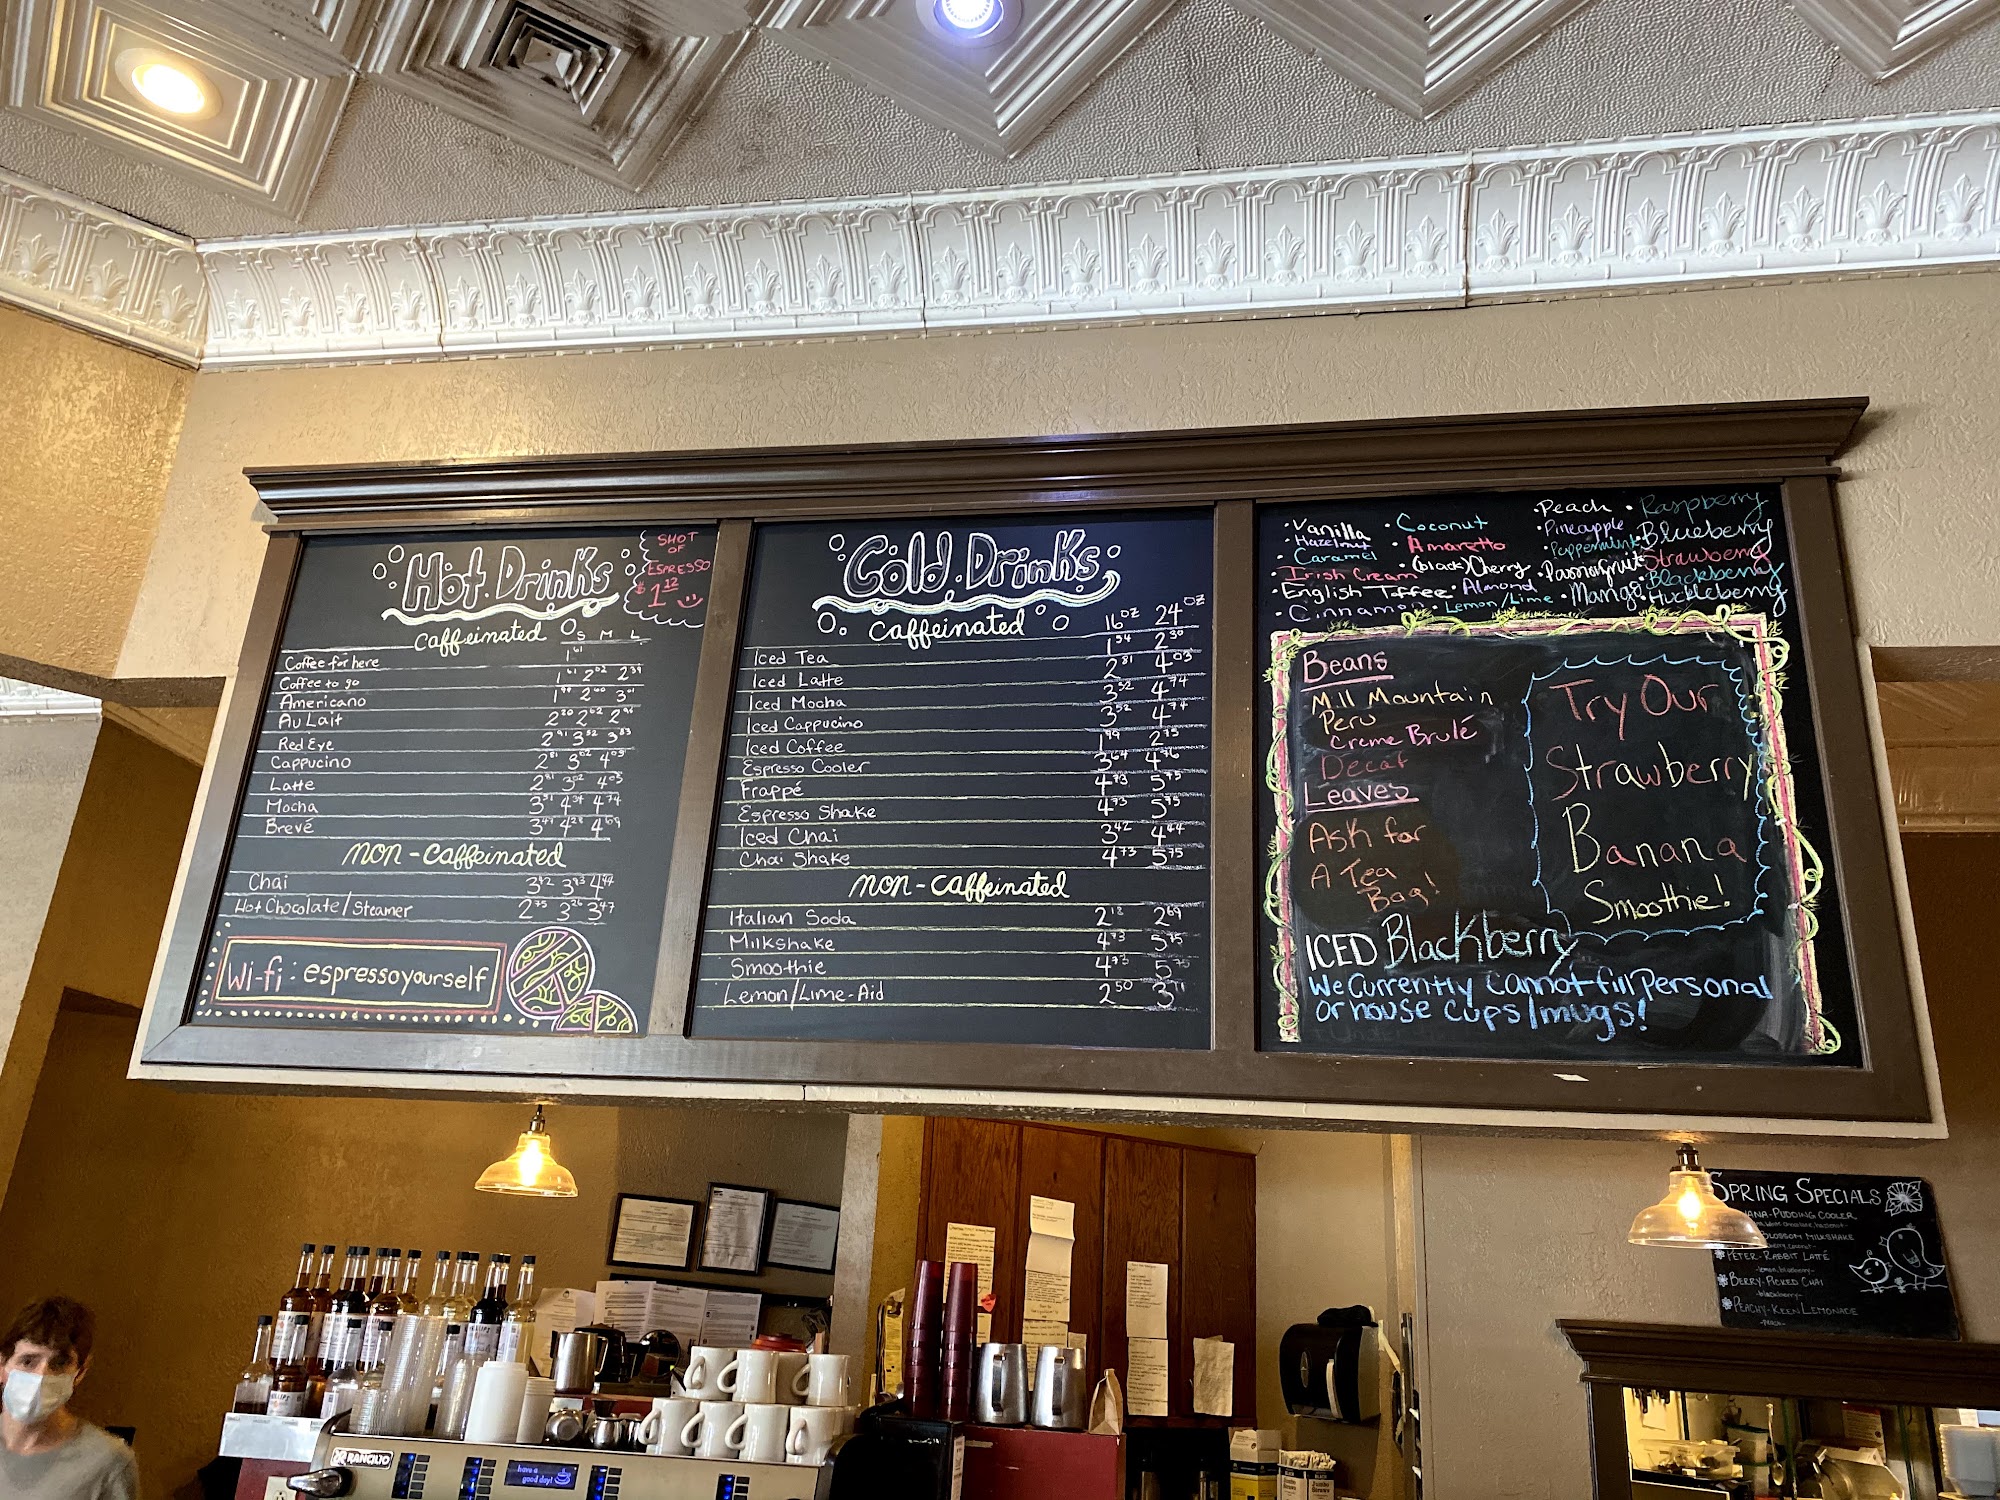 Hot Drinks
SHOT
OF
ESPRESSO
$1.12
caffeinated
S M L
Coffee for here 1.61
Coffee to go 1.61 2.02 2.39
Americano 1.99 2.40 3.01
Au Lait 2.20 2.62 2.96
Red Eye 2.91 3.52 3.83
Cappucino 2.81 3.02 4.03
Latte 2.81 3.02 4.03
Mocha 3.51 4.34 4.74
Brevé 3.47 4.28 4.69
non-caffeinated
Chai 3.42 3.93 4.44
Hot Chocolate/Steamer 2.75 3.26 3.47
Wi-fi: espressoyourself
Cold Drinks
caffeinated
16oz 24oz
Iced Tea 1.54 2.30
Iced Latte 2.81 4.03
Iced Mocha 3.52 4.74
Iced Cappucino 3.52 4.74
Iced Coffee 1.99 2.75
Espresso Cooler 3.64 4.76
Frappé 4.73 5.75
Espresso Shake 4.73 5.95
Iced Chai 3.42 4.44
Chai Shake 4.73 5.75
non-caffeinated
Italian Soda 2.18 2.69
Milkshake 4.73 5.75
Smoothie 4.73 5.75
Lemon/Lime-Aid 2.50 3.11
• Vanilla
• Hazelnut
• Caramel
• Irish Cream
• English Toffee
• Cinnamon
• Coconut
• Amaretto
• (black) Cherry
• Almond
• Lemon/Lime
• Peach
• Pineapple
• Peppermint
• Passionfruit
• Mango
• Raspberry
• Blueberry
• Strawberry
• Blackberry
• Huckleberry
Beans
Mill Mountain
Peru
Creme Brulé
Decaf
Leaves
Ask for
A Tea
Bag!
Try Our
Strawberry
Banana
Smoothie!
ICED Blackberry
We Currently cannot fill personal
or house cups/mugs!
SPRING SPECIALS
NANA-PUDDING COOLER
BLOSSOM MILKSHAKE
PETER-RABBIT LATTÉ
-lemon, blueberry-
BERRY-PICKED CHAI
-blackberry-
PEACHY-KEEN LEMONADE
-PEACH-
RANCILIO
have a
good day!